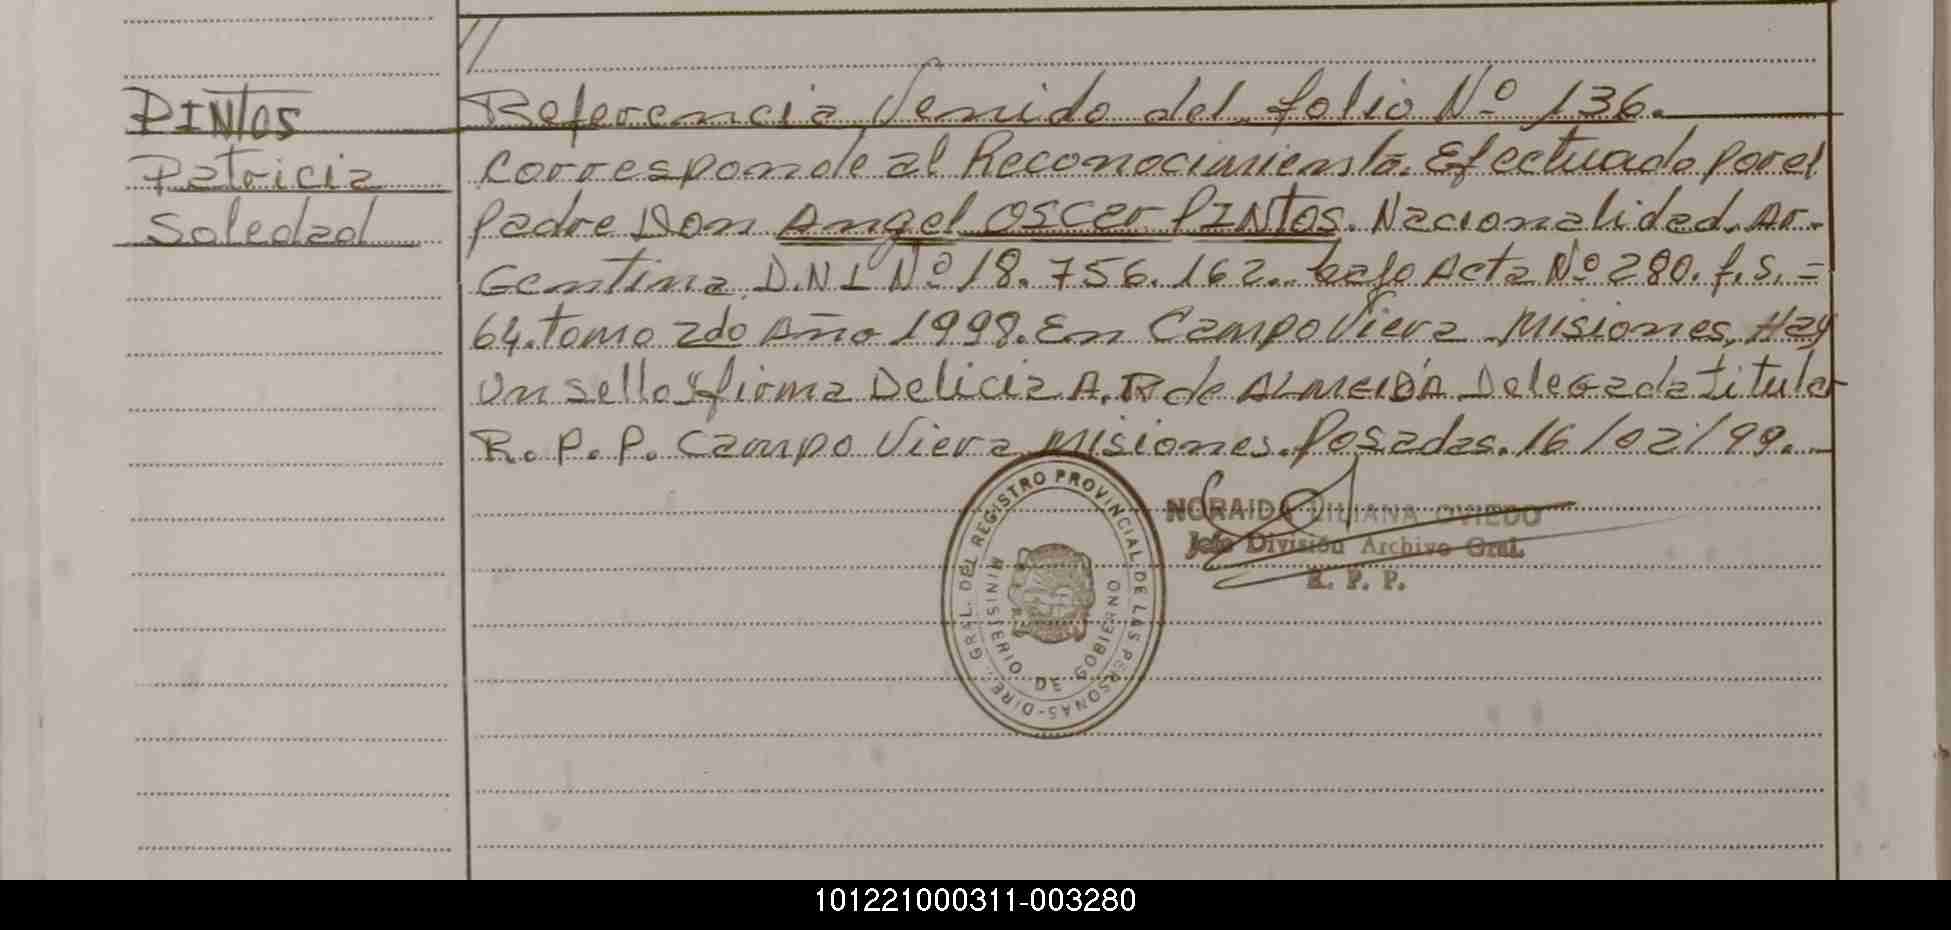 //
PINTOS
Patricia
Soledad
Referencia Venido del folio Nº 136.
Corresponde al Reconocimiento. Efectuado por el
padre Don Angel OSCAR PINTOS. Nacionalidad. Ar-
Gentina. D.N.I Nº 18.756.162.. bajo Acta Nº 280. f.s.=
64. tomo 2do Año 1998. En Campo Viera Misiones, Hay
Un sello y firma Delicia A. R de ALMEIDA Delegada titular
R. P. P. Campo Viera Misiones. Posadas. 16/02/99.
DIREC. GRAL. DEL REGISTRO PROVINCIAL DE LAS PERSONAS-
MINISTERIO DE GOBIERNO
NORAIDA LILIANA OVIEDO
Jefe División Archivo Gral.
R. P. P.
101221000311-003280